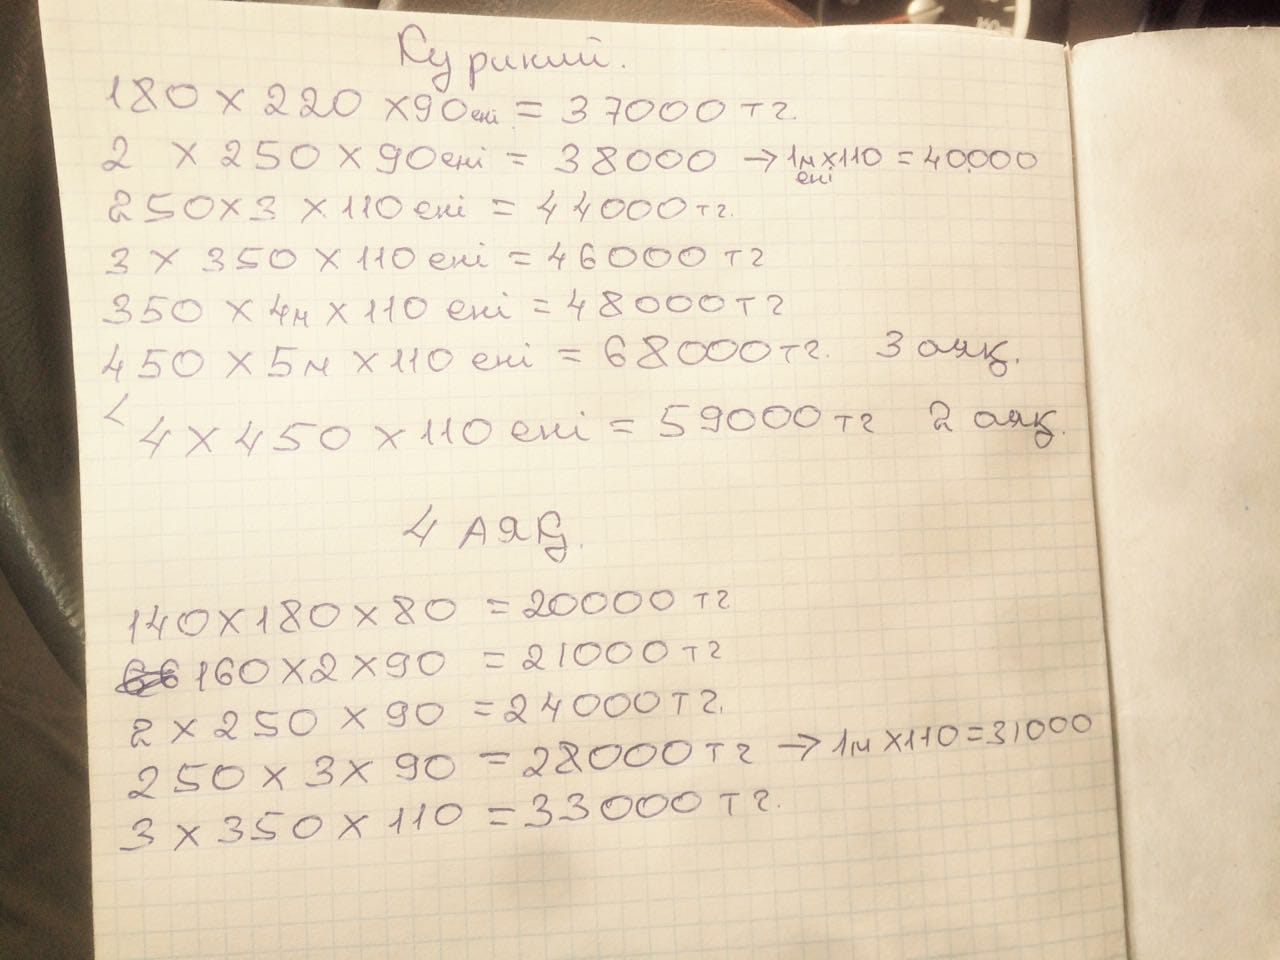 Курикий.
180 х 220 х90 ені = 37000 тг.
2 х 250 х 90 ені = 38000 → 1м х 110 = 40.000
ені
250 х 3 х 110 ені = 44000 тг.
3 х 350 х 110 ені = 46000 тг
350 х 4м х 110 ені = 48000 тг
450 х 5м х 110 ені = 68000 тг. 3 аяқ.
< 4 х 450 х 110 ені = 59000 тг 2 аяқ.
4 АЯҚ.
140 х 180 х 80 = 20000 тг
160 х 2 х 90 = 21000 тг
2 х 250 х 90 = 24000 тг.
250 х 3 х 90 = 28000 тг → 1м х 110 = 31000
3 х 350 х 110 = 33000 тг.